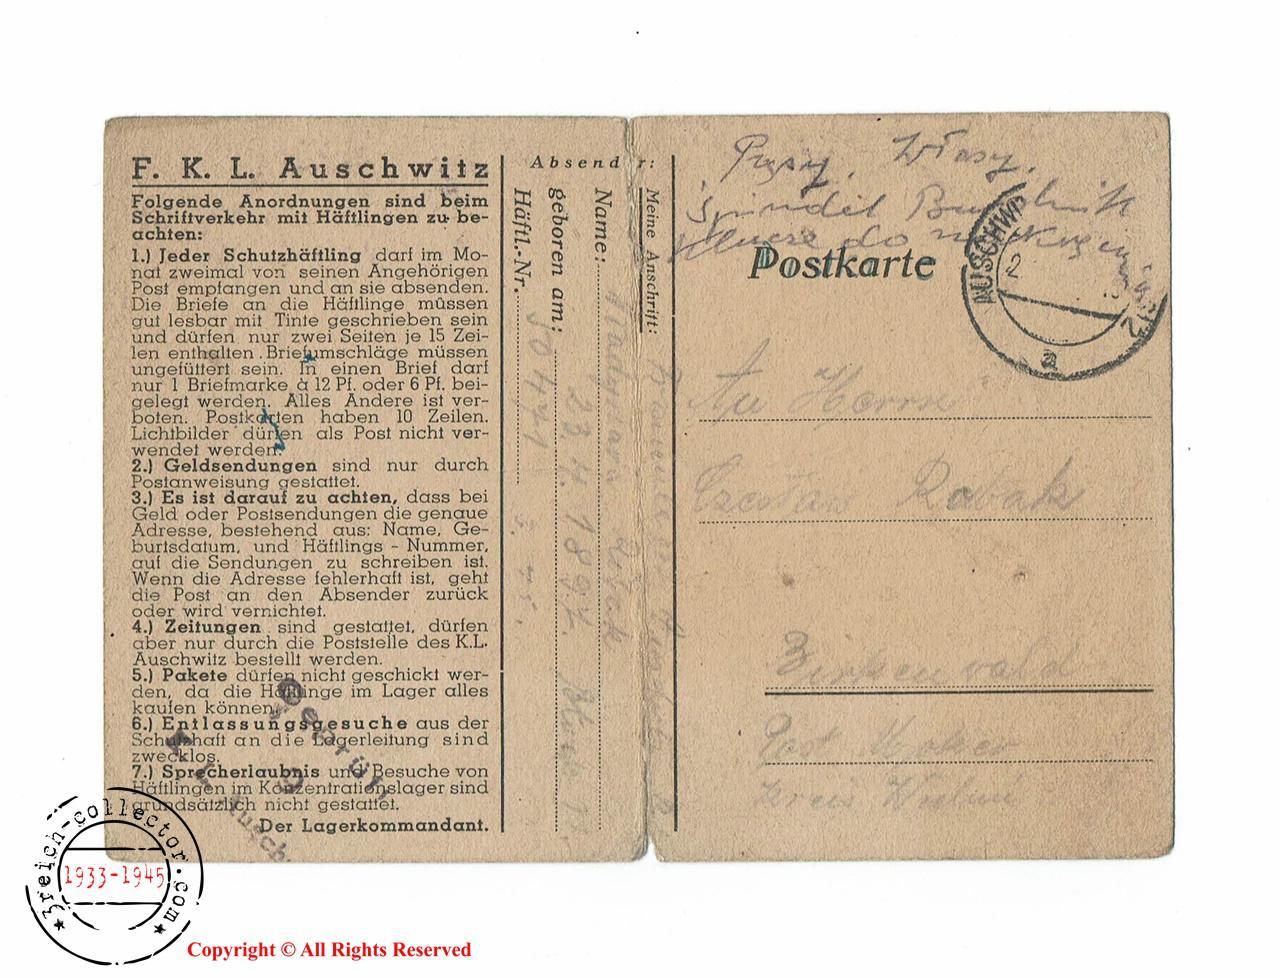 F. K. L. Auschwitz
Folgende Anordnungen sind beim
Schriftverkehr mit Häftlingen zu be-
achten:
1.) Jeder Schutzhäftling darf im Mo-
nat zweimal von seinen Angehörigen
Post empfangen und an sie absenden.
Die Briefe an die Häftlinge müssen
gut lesbar mit Tinte geschrieben sein
und dürfen nur zwei Seiten je 15 Zei-
len enthalten. Briefumschläge müssen
ungefüttert sein. In einen Brief darf
nur 1 Briefmarke à 12 Pf. oder 6 Pf. bei-
gelegt werden. Alles Andere ist ver-
boten. Postkarten haben 10 Zeilen.
Lichtbilder dürfen als Post nicht ver-
wendet werden.
2.) Geldsendungen sind nur durch
Postanweisung gestattet.
3.) Es ist darauf zu achten, dass bei
Geld oder Postsendungen die genaue
Adresse, bestehend aus: Name, Ge-
burtsdatum, und Häftlings - Nummer,
auf die Sendungen zu schreiben ist.
Wenn die Adresse fehlerhaft ist, geht
die Post an den Absender zurück
oder wird vernichtet.
4.) Zeitungen sind gestattet, dürfen
aber nur durch die Poststelle des K.L.
Auschwitz bestellt werden.
5.) Pakete dürfen nicht geschickt wer-
den, da die Häftlinge im Lager alles
kaufen können.
6.) Entlassungsgesuche aus der
Schutzhaft an die Lagerleitung sind
zwecklos.
7.) Sprecherlaubnis und Besuche von
Häftlingen im Konzentrationslager sind
grundsätzlich nicht gestattet.
Der Lagerkommandant.
Geprüft
Absender:
Meine Anschrift:
Name:
geboren am: 22. 4. 189
Häftl.-Nr.
Postkarte
AUSCHWITZ
2
a
An Herrn
Rabak
Birkenwald
Post
3reich-collector.com
1933-1945
Copyright © All Rights Reserved